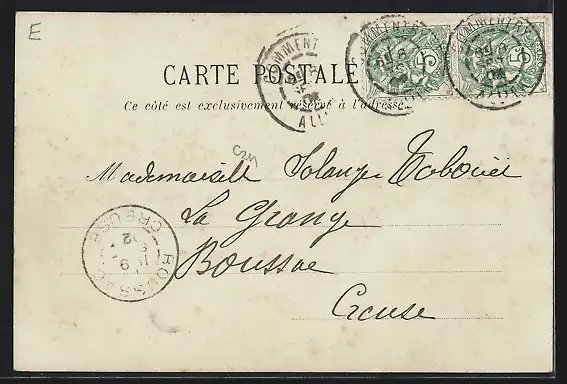 E
CARTE POSTALE
Ce côté est exclusivement réservé à l'adresse.
COMMENTRY
ALLIER
5
5
Mademoiselle Solange Tabouié
La Grange
Boussac
Creuse
BOUSSAC
CREUSE
02